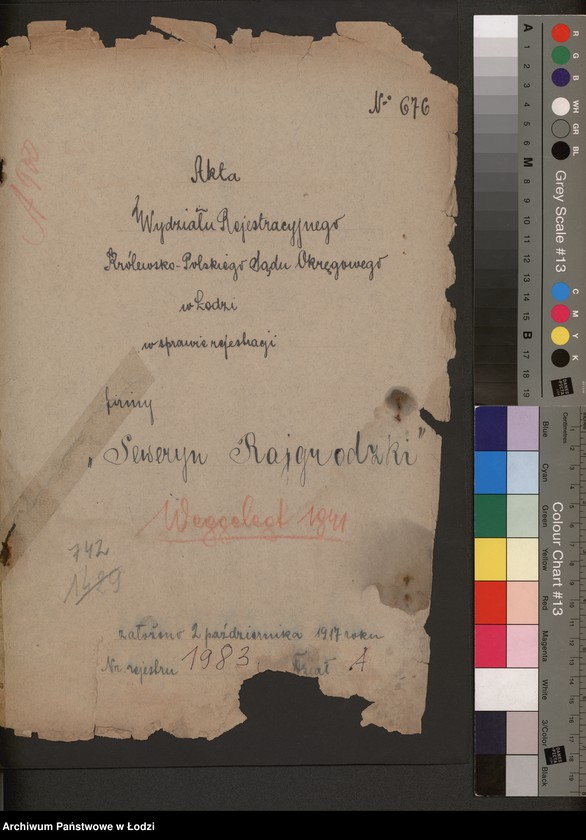 No 676
Akta
Wydziału Rejestracyjnego
Królewsko-Polskiego Sądu Okręgowego
w Łodzi
w sprawie rejestracji
firmy
„Seweryn Rajgrodzki"
Weggelegt 1941
742
1429
założono 2 października 1917 roku
Nr rejestru 1983 A
A
1
2
3
4
5
6
M
8
9
10
11
12
13
14
15
B
17
18
19
R
G
B
WH
GR
BL
Grey Scale #13
C
M
Y
K
Colour Chart #13
Blue
Cyan
Green
Yellow
Red
Magenta
White
3/Color
Black
Centimetres
Archiwum Państwowe w Łodzi